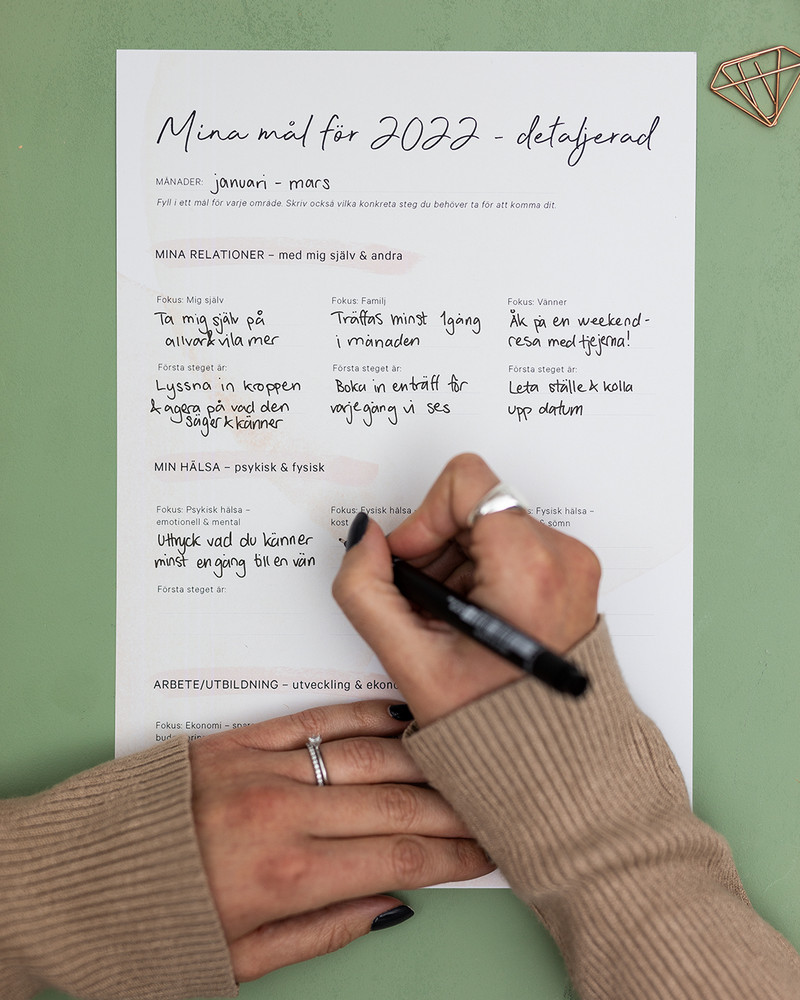 Mina mål för 2022 - detaljerad
MÅNADER: januari - mars
Fyll i ett mål för varje område. Skriv också vilka konkreta steg du behöver ta för att komma dit.
MINA RELATIONER – med mig själv & andra
Fokus: Mig själv
Ta mig själv på
allvar & vila mer
Första steget är:
Lyssna in kroppen
& agera på vad den
säger & känner
Fokus: Familj
Träffas minst 1 gång
i månaden
Första steget är:
Boka in en träff för
varje gång vi ses
Fokus: Vänner
Åk på en weekend-
resa med tjejerna!
Första steget är:
Leta ställe & kolla
upp datum
MIN HÄLSA – psykisk & fysisk
Fokus: Psykisk hälsa –
emotionell & mental
Uttryck vad du känner
minst en gång till en vän
Första steget är:
Fokus: Fysisk hälsa –
kost
: Fysisk hälsa –
& sömn
ARBETE/UTBILDNING – utveckling &
Fokus: Ekonomi –